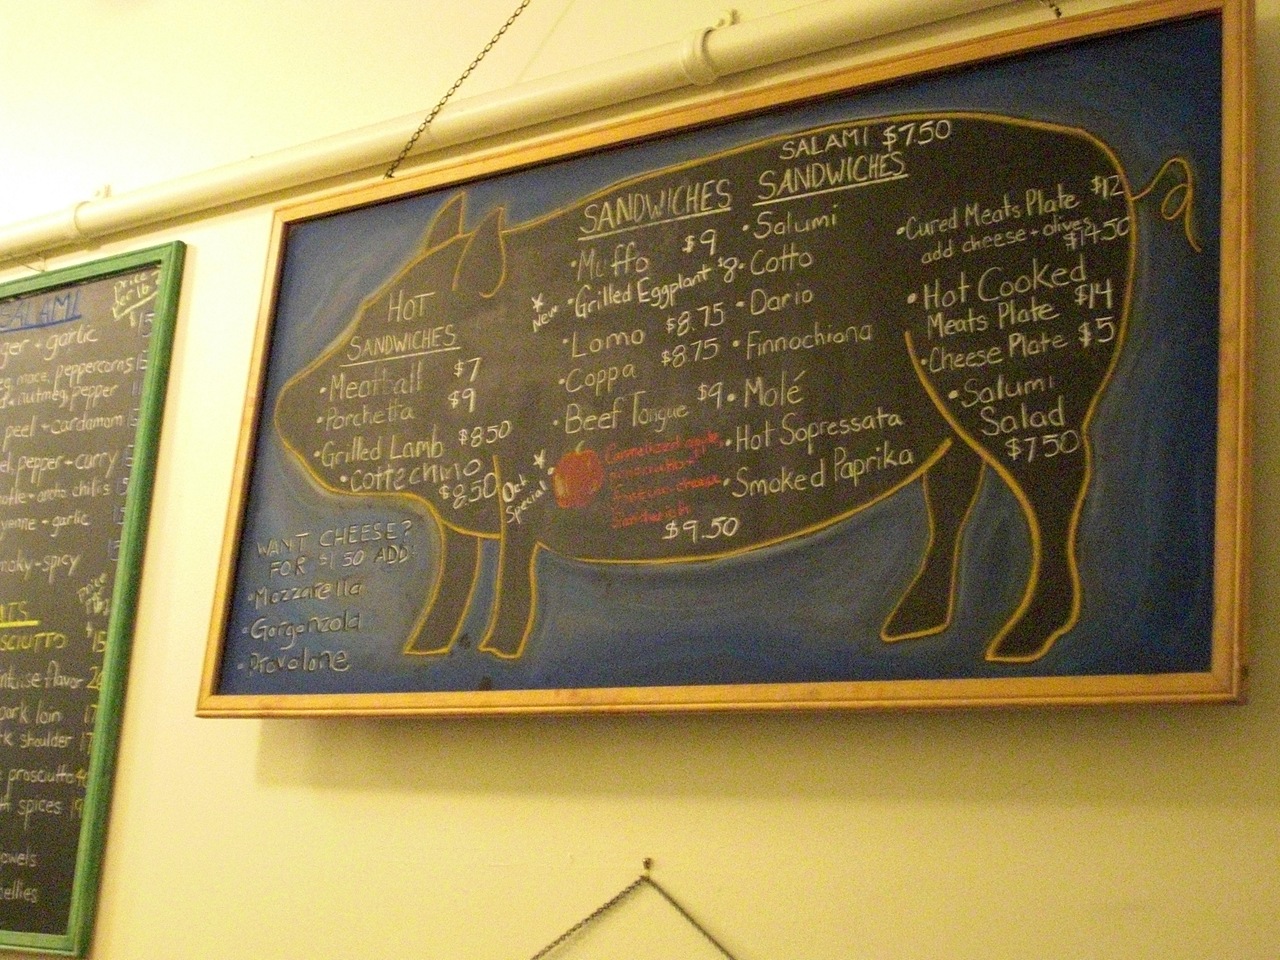 SALAMI
price
per lb
ger + garlic
$15
eg, mace, peppercorns
nutmeg, pepper
peel + cardamom
pepper + curry
ancho chilis
yenne + garlic
moky-spicy
price
SCIUTTO $15
flavor
pork loin 17
shoulder 17
prosciutto
spices
owels
HOT
SANDWICHES
• Meatball $7
• Porchetta $9
• Grilled Lamb $8.50
• Cottechino
$8.50
WANT CHEESE?
FOR $1.50 ADD:
• Mozzarella
• Gorgonzola
• Provolone
SANDWICHES
• Muffo $9
* New • Grilled Eggplant $8
• Lomo $8.75
• Coppa $8.75
• Beef Tongue $9
* Oct
Special
Caramelized apple
prosciutto +
cheese
Sandwich
$9.50
SALAMI $7.50
SANDWICHES
• Salumi
• Cotto
• Dario
• Finnochiona
• Molé
• Hot Sopressata
• Smoked Paprika
• Cured Meats Plate $12
add cheese + olives
$14.50
• Hot Cooked
Meats Plate $14
• Cheese Plate $5
• Salumi
Salad
$7.50